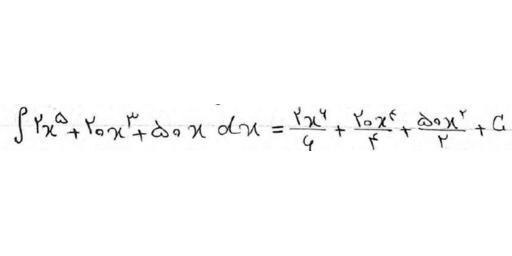 ∫ ۲x^۵ + ۲۰x^۳ + ۵۰x dx = ۲x^۶/۶ + ۲۰x^۴/۴ + ۵۰x^۲/۲ + C